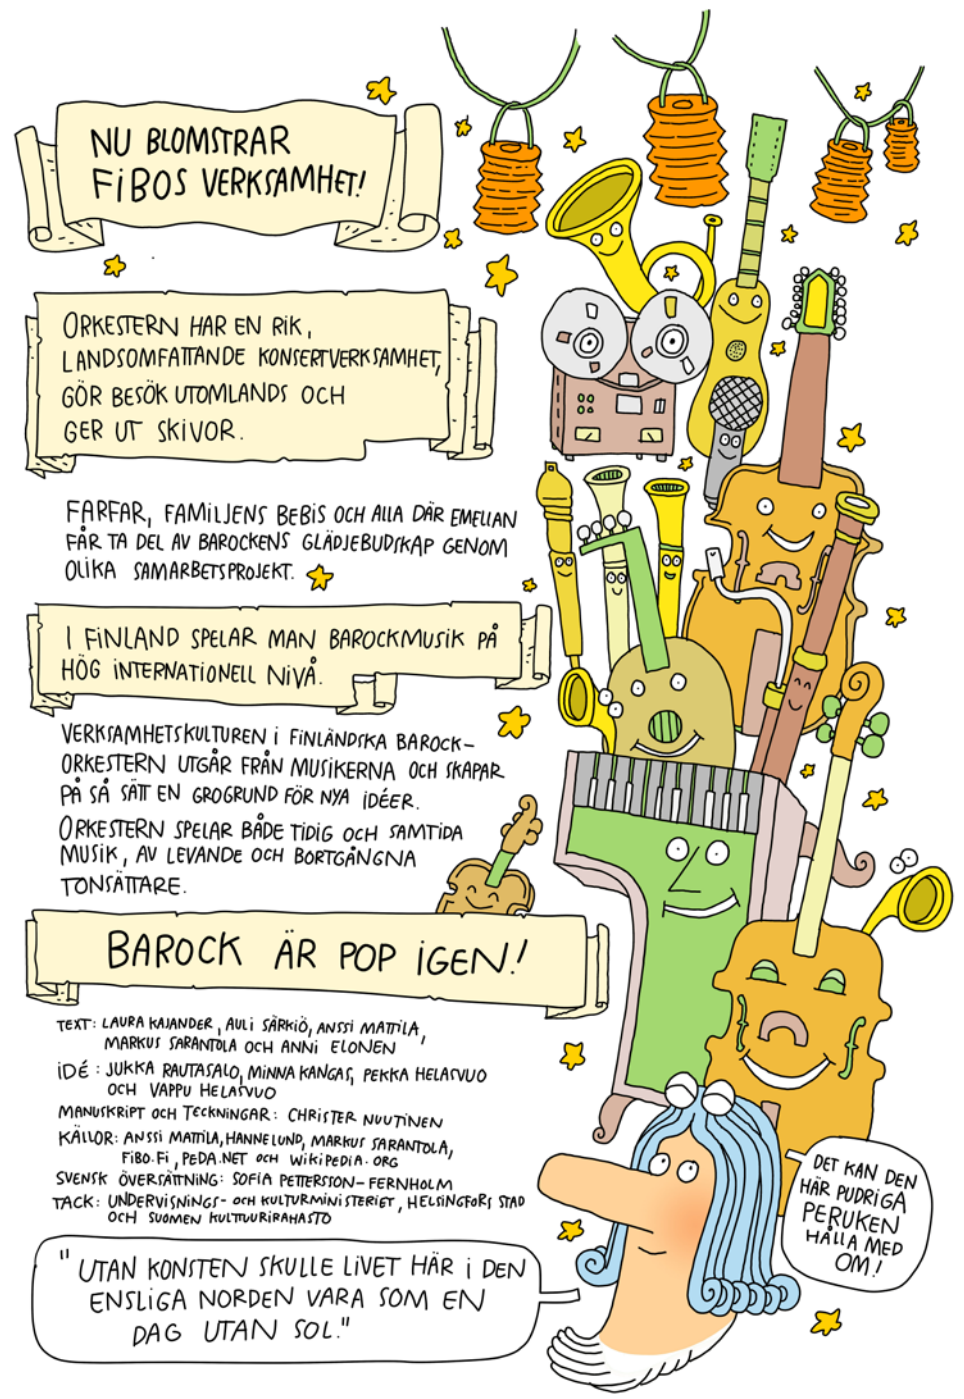 NU BLOMSTRAR
FiBOS VERKSAMHET!
ORKESTERN HAR EN RiK,
LANDSOMFATTANDE KONSERTVERKSAMHET,
GÖR BESÖK UTOMLANDS OCH
GER UT SKiVOR.
FARFAR, FAMiLJENS BEBiS OCH ALLA DÄR EMELLAN
FÅR TA DEL AV BAROCKENS GLÄDJEBUDSKAP GENOM
OLiKA SAMARBETSPROJEKT.
I FiNLAND SPELAR MAN BAROCKMUSiK PÅ
HÖG iNTERNATiONELL NiVÅ.
VERKSAMHETSKULTUREN i FiNLÄNDSKA BAROCK-
ORKESTERN UTGÅR FRÅN MUSiKERNA OCH SKAPAR
PÅ SÅ SÄTT EN GROGRUND FÖR NYA iDÉER.
ORKESTERN SPELAR BÅDE TiDiG OCH SAMTiDA
MUSiK, AV LEVANDE OCH BORTGÅNGNA
TONSÄTTARE.
BAROCK ÄR POP iGEN!
TEXT: LAURA KAJANDER, AULi SÄRKiÖ, ANSSi MATTiLA,
MARKUS SARANTOLA OCH ANNi ELONEN
iDÉ: JUKKA RAUTASALO, MiNNA KANGAS, PEKKA HELASVUO
OCH VAPPU HELASVUO
MANUSKRiPT OCH TECKNiNGAR: CHRiSTER NUUTiNEN
KÄLLOR: ANSSi MATTiLA, HANNE LUND, MARKUS SARANTOLA,
FiBO.Fi, PEDA.NET OCH WiKiPEDiA.ORG
SVENSK ÖVERSÄTTNiNG: SOFiA PETTERSSON-FERNHOLM
TACK: UNDERViSNiNGS- OCH KULTURMiNiSTERiET, HELSiNGFORS STAD
OCH SUOMEN KULTTUURiRAHASTO
DET KAN DEN
HÄR PUDRiGA
PERUKEN
HÅLLA MED
OM!
"UTAN KONSTEN SKULLE LiVET HÄR i DEN
ENSLiGA NORDEN VARA SOM EN
DAG UTAN SOL."